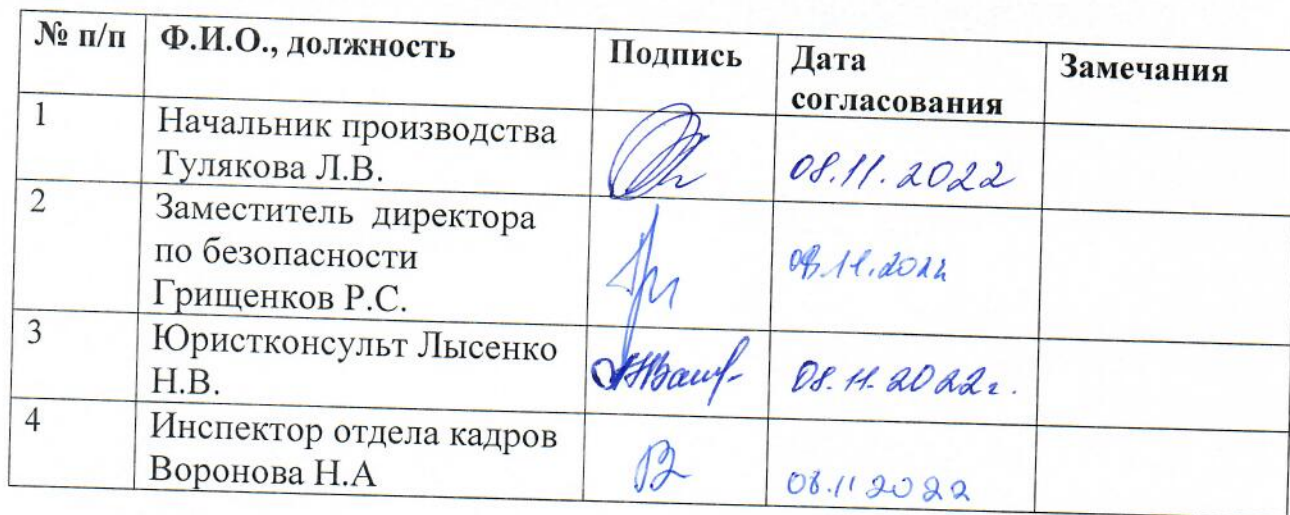 № п/п Ф.И.О., должность Подпись Дата согласования Замечания
1 Начальник производства 08.11.2022
Тулякова Л.В.
2 Заместитель директора
по безопасности 08.11.2022
Грищенков Р.С.
3 Юристконсульт Лысенко 08.11.2022г.
Н.В.
4 Инспектор отдела кадров
Воронова Н.А 08.11 2022